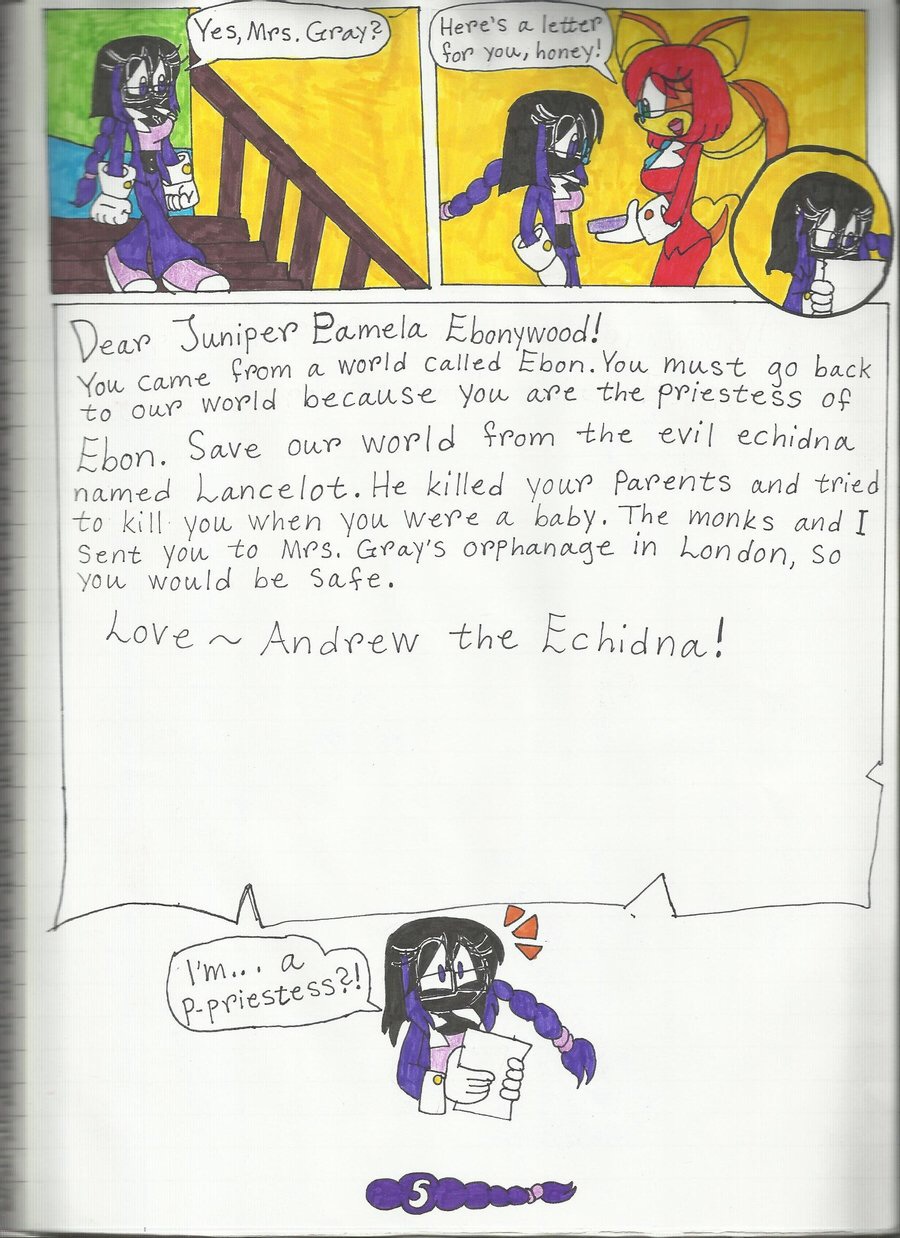 Yes, Mrs. Gray?
Here's a letter
for you, honey!
Dear Juniper Pamela Ebonywood!
You came from a world called Ebon. You must go back
to our world because you are the priestess of
Ebon. Save our world from the evil echidna
named Lancelot. He killed your parents and tried
to kill you when you were a baby. The monks and I
sent you to Mrs. Gray's orphanage in London, so
you would be safe.
Love ~ Andrew the Echidna!
I'm... a
p-priestess?!
5